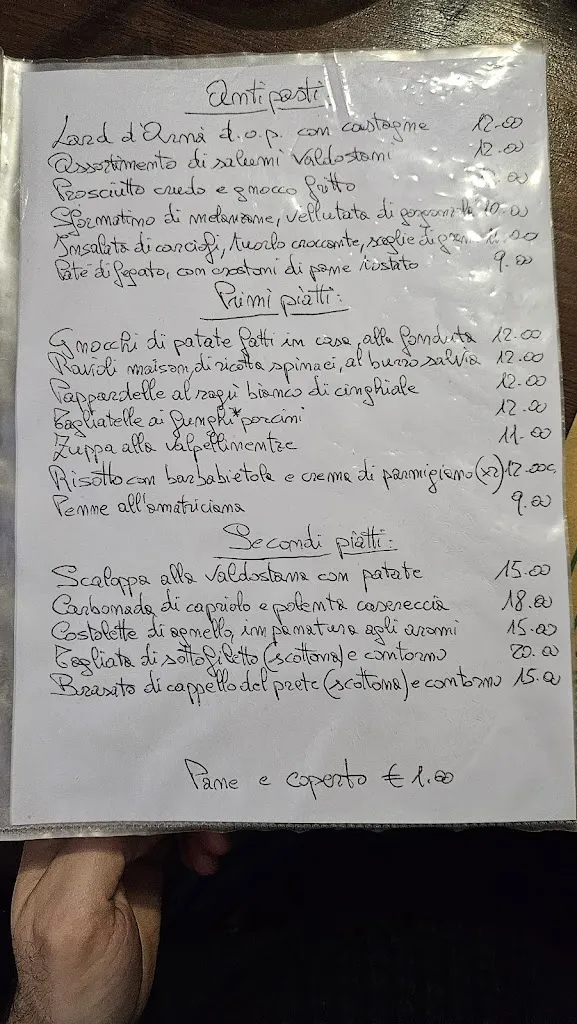 Antipasti
Lard d'Arnà d.o.p. con castagne 12.00
Assortimento di salumi Valdostani 12.00
Prosciutto crudo e gnocco fritto .00
Sformatino di melanzane, vellutata di gorgonzola 10.00
Insalata di carciofi, tuorlo croccante, scaglie di .00
Paté di fegato, con crostoni di pane tostato 9.00
Primi piatti:
Gnocchi di patate fatti in casa, alla fonduta 12.00
Ravioli maison, di ricotta spinaci, al burro salvia 12.00
Pappardelle al ragù bianco di cinghiale 12.00
Tagliatelle ai funghi* porcini 12.00
Zuppa alla valpellinentze 11.00
Risotto con barbabietola e crema di parmigiano (x2) 12.00
Penne all'amatriciana 9.00
Secondi piatti:
Scaloppa alla Valdostana con patate 15.00
Carbonada di capriolo e polenta casereccia 18.00
Costolette di agnello, impanatura agli aromi 15.00
Tagliata di sottofiletto (scottona) e contorno 20.00
Brasato di cappello del prete (scottona) e contorno 15.00
Pane e coperto € 1.00